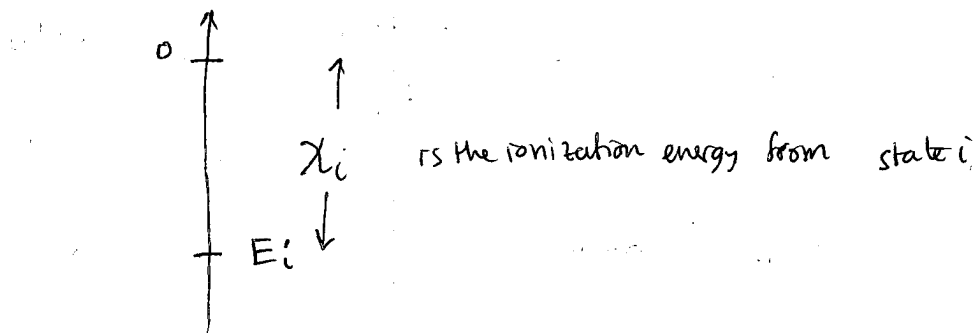 0
χᵢ is the ionization energy from state i
Eᵢ